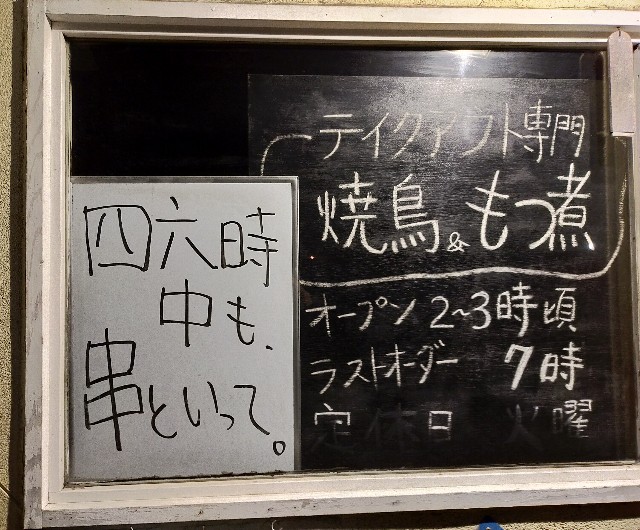 テイクアウト専門
焼鳥&もつ煮
オープン 2~3時頃
ラストオーダー 7時
定休日 火曜
四六時
中も、
串といって。